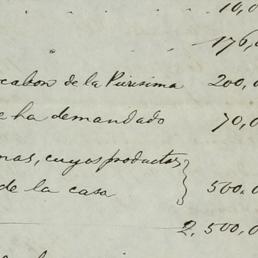 10,0
176,0
cabon de la Purisima 200,0
e ha demandado 70,0
nas, cuyos productos
de la casa 500,0
2,500,0